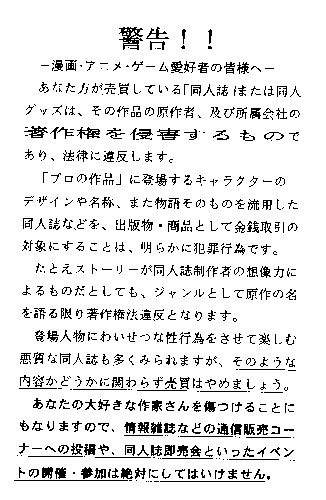 警告！！
－漫画・アニメ・ゲーム愛好者の皆様へ－
あなた方が売買している「同人誌」または同人
グッズは、その作品の原作者、及び所属会社の
著作権を侵害するもので
あり、法律に違反します。
「プロの作品」に登場するキャラクターの
デザインや名称、また物語そのものを流用した
同人誌などを、出版物・商品として金銭取引の
対象にすることは、明らかに犯罪行為です。
たとえストーリーが同人誌制作者の想像力に
よるものだとしても、ジャンルとして原作の名
を語る限り著作権法違反となります。
登場人物にわいせつな性行為をさせて楽しむ
悪質な同人誌も多くみられますが、そのような
内容かどうかに関わらず売買はやめましょう。
あなたの大好きな作家さんを傷つけることに
もなりますので、情報雑誌などの通信販売コー
ナーへの投稿や、同人誌即売会といったイベン
トの開催・参加は絶対にしてはいけません。